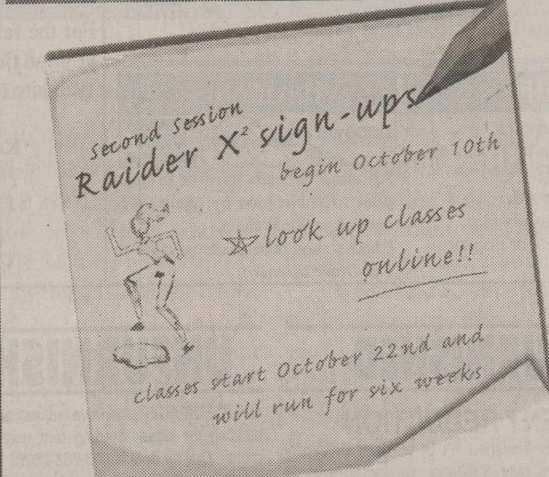 Put the
second session
Raider X² sign-ups
begin October 10th
☆look up classes
online!!
classes start October 22nd and
will run for six weeks